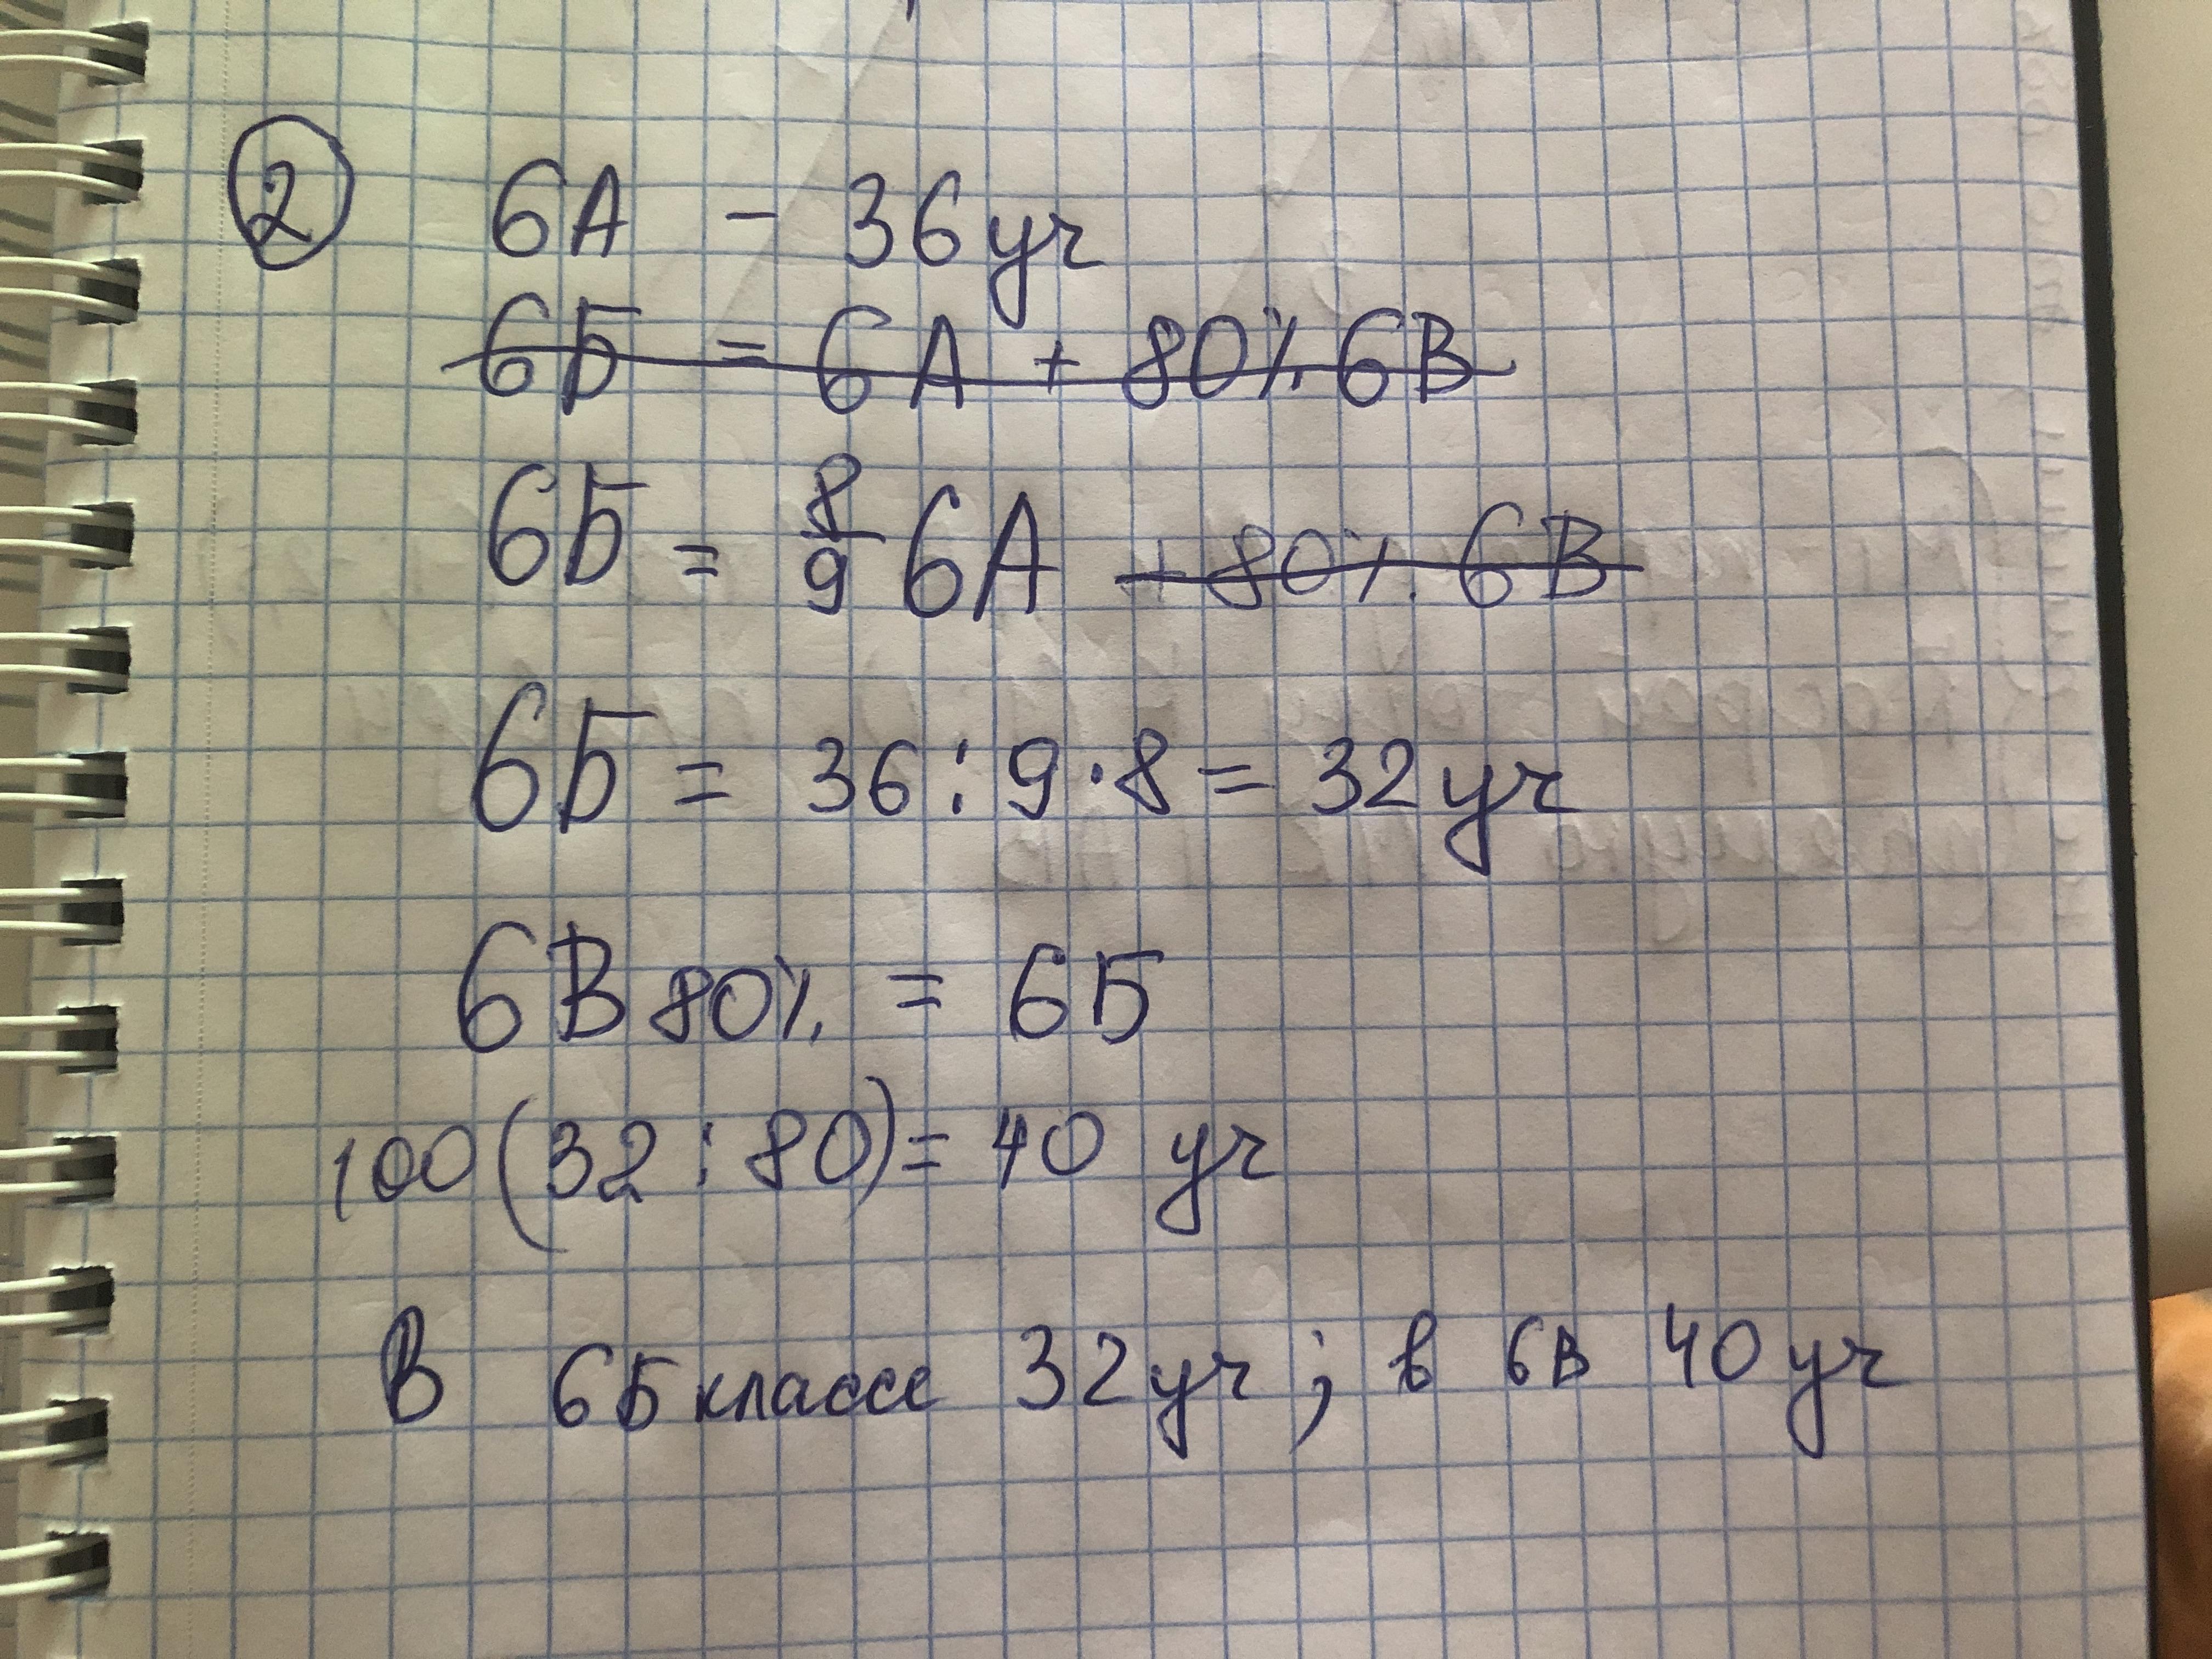 2 6А - 36 уч
6Б = 6А + 80% 6В
6Б = 8/9 6А + 80% 6В
6Б = 36 : 9 · 8 = 32 уч
6В 80% = 6Б
100(32 : 80) = 40 уч
В 6Б классе 32 уч; в 6В 40 уч